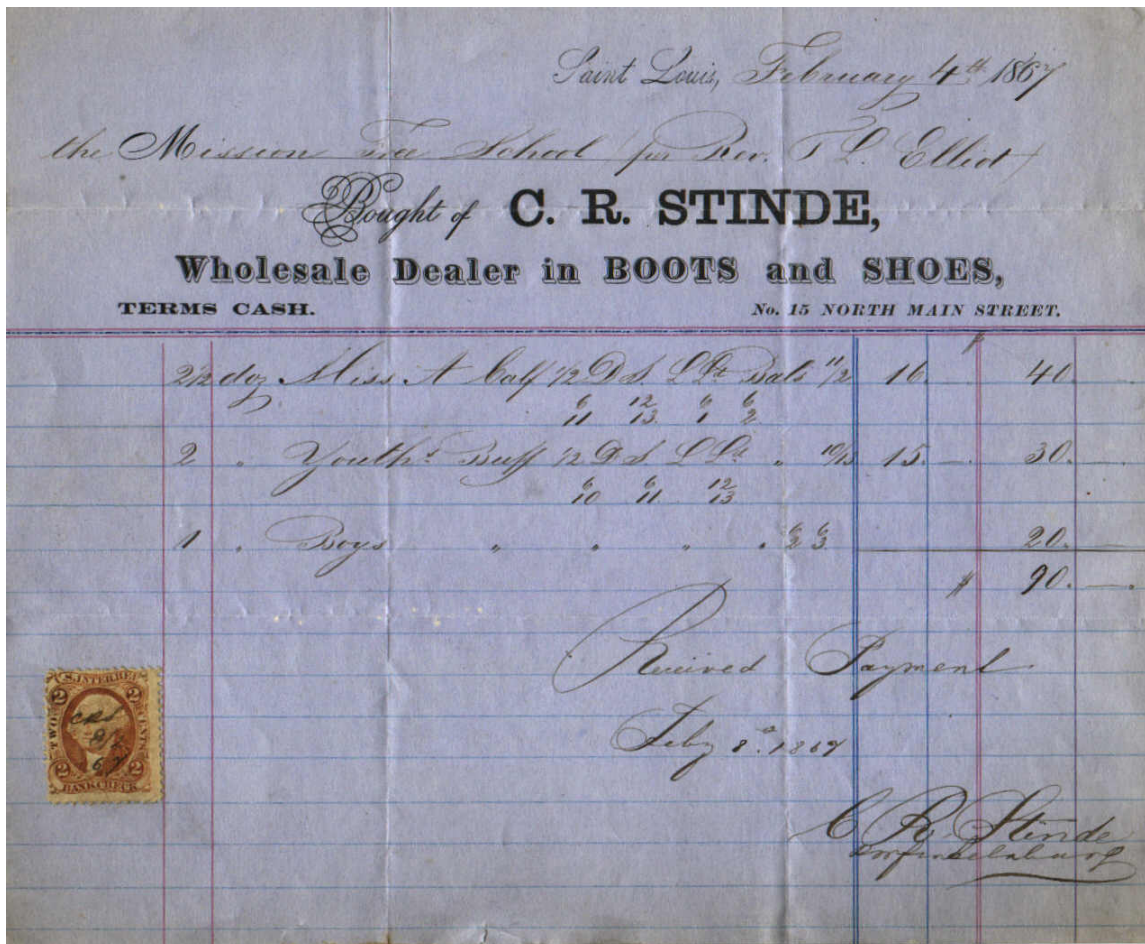 Saint Louis, February 4th 1867
the Mission Free School (per Rev. T L. Elliot)
Bought of C. R. STINDE,
Wholesale Dealer in BOOTS and SHOES,
TERMS CASH. No. 15 NORTH MAIN STREET.
$
2 1/2 doz Miss A Calf 1/2 D S. L Bals 11/2 16. 40.
6/11 12/13 6/1 6/2
2 " Youths Buff 1/2 D S L " 10/13 15.— 30.—
6/10 6/11 12/13
1 " Boys " " " " 6/2 6/3 20.—
$ 90.—
Received Payment
Feby 8th 1867
C R. Stinde
U.S. INTER. REV.
2 2
TWO CENTS
CRS
8/2
67
2 2
BANK CHECK